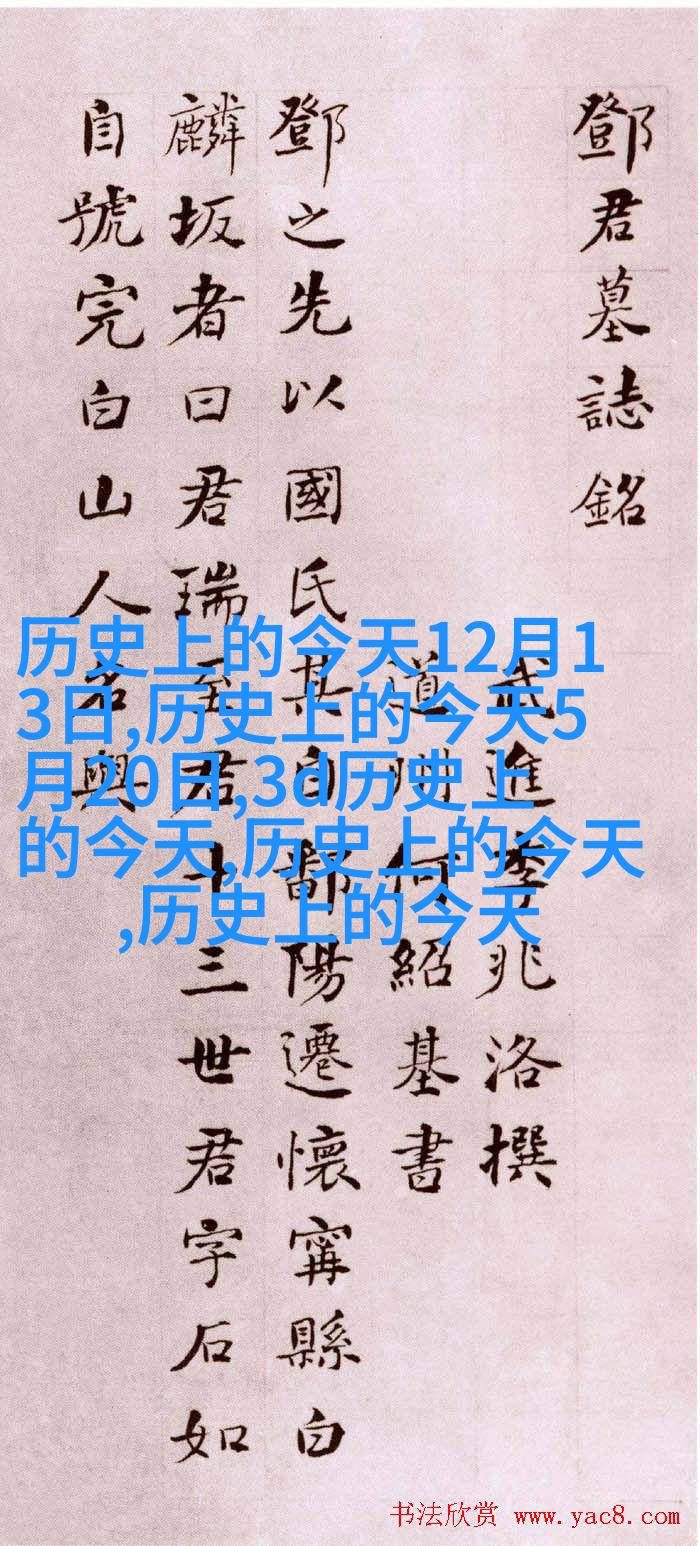 鄧君墓誌銘
武進李兆洛撰
道州何紹基書
鄧之先以國氏某自鄱陽遷懷甯縣白
麟坂者曰君瑞至君十三世君字石如
自號完白山人名與
历史上的今天12月1
3日,历史上的今天5
月20日,3d历史上
的今天,历史上的今天
,历史上的今天
书法欣赏 www.yac8.com